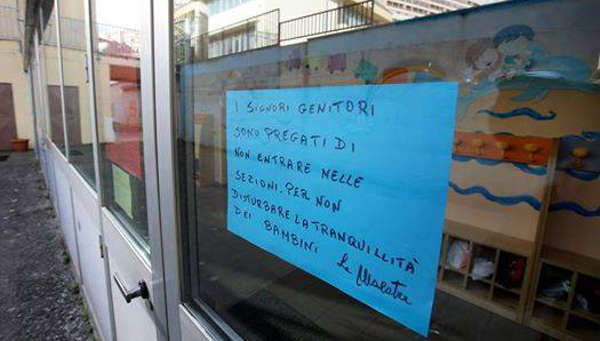 I SIGNORI GENITORI
SONO PREGATI DI
NON ENTRARE NELLE
SEZIONI. PER NON
DISTURBARE LA TRANQUILLITÀ
DEI BAMBINI
le Maestre